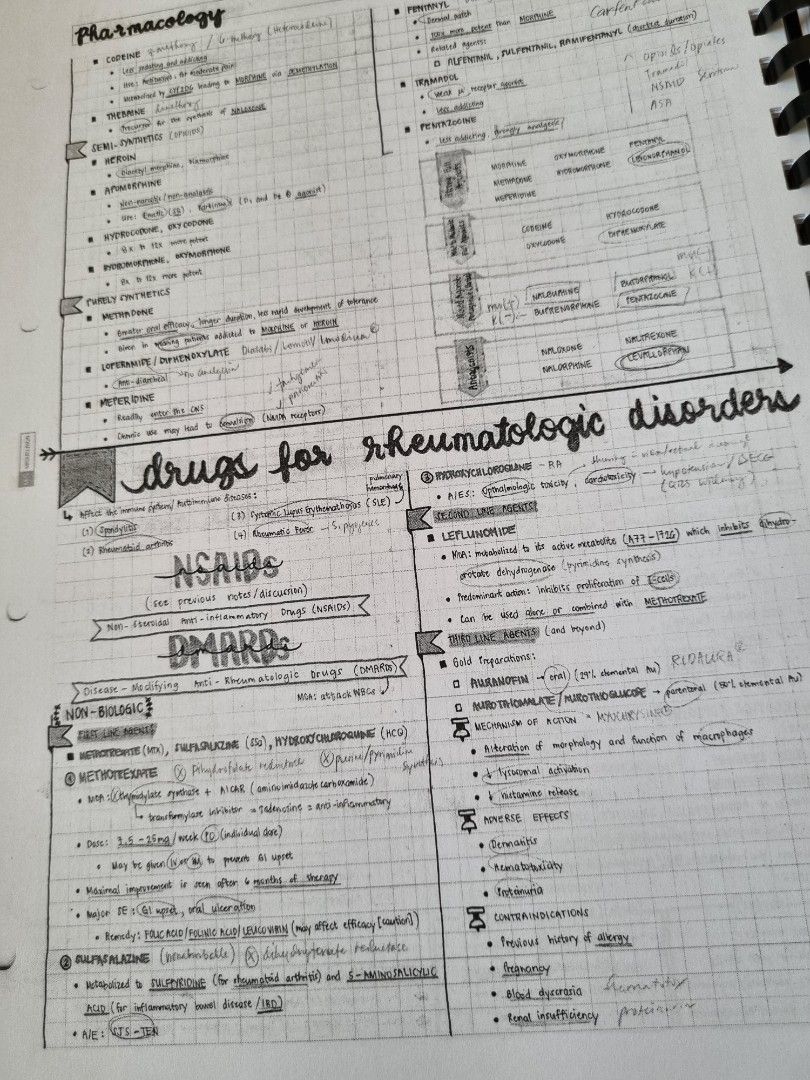 Pharmacology
CODEINE
Less sedating and addicting
Use: Antitussive, for moderate pain
Metabolized by CYP2D6 leading to MORPHINE via DEMETHYLATION
THEBAINE
Precursor for the synthesis of NALOXONE
SEMI-SYNTHETICS (OPIOIDS)
HEROIN
Diacetyl morphine, Diamorphine
APOMORPHINE
Non-narcotic/non-analgesic
HYDROCODONE, OXYCODONE
8x to 12x more potent
HYDROMORPHONE, OXYMORPHONE
8x to 12x more potent
PURELY SYNTHETICS
METHADONE
Greater oral efficacy, longer duration, less rapid development of tolerance
Given in weaning patients addicted to MORPHINE or HEROIN
LOPERAMIDE/DIPHENOXYLATE
Anti-diarrheal
MEPERIDINE
Readily enter the CNS
Chronic use may lead to convulsion (NMDA receptors)
FENTANYL
Dermal patch
100x more potent than MORPHINE
Related agents:
ALFENTANIL, SULFENTANIL, RAMIFENTANYL (shortest duration)
Opioids/Opiates
Tramadol
NSAID
ASA
TRAMADOL
Weak μ receptor agonist
Less addicting
PENTAZOCINE
Less addicting, strongly analgesic
MORPHINE OXYMORPHONE FENTANYL
METHADONE HYDROMORPHONE LEVORPHANOL
MEPERIDINE
CODEINE HYDROCODONE
OXYCODONE DIPHENOXYLATE
NALBUPHINE BUTORPHANOL
BUPRENORPHINE PENTAZOCINE
Antagonists
NALOXONE NALTREXONE
NALORPHINE LEVALLORPHAN
drugs for rheumatologic disorders
Affect the immune system/Autoimmune diseases:
(1) Spondylitis
(2) Rheumatoid arthritis
(3) Systemic Lupus Erythematosus (SLE)
pulmonary
hemorrhage
(4) Rheumatic Fever - S. pyogenes
NSAIDs
nsaids
(see previous notes/discussion)
Non-Steroidal Anti-inflammatory Drugs (NSAIDs)
DMARDs
dmards
Disease-Modifying Anti-Rheumatologic Drugs (DMARDs)
MOA: attack WBCs
NON-BIOLOGIC
FIRST LINE AGENTS
METHOTREXATE (MTX), SULFASALAZINE (SSZ), HYDROXYCHLOROQUINE (HCQ)
① METHOTREXATE ⓧ Dihydrofolate reductase ⓧ purine/pyrimidine
synthesis
MOA: thymidylate synthase + AICAR (aminoimidazole carboxamide)
transformylase inhibitor → adenosine = anti-inflammatory
Dose: 7.5 - 25mg/week PO (individual dose)
May be given IV or IM to prevent GI upset
Maximal improvement is seen after 6 months of therapy
Major SE: GI upset, oral ulceration
Remedy: FOLIC ACID/FOLINIC ACID/LEUCOVORIN (may affect efficacy [caution])
② SULFASALAZINE ⓧ dihydropteroate reductase
Metabolized to SULFPYRIDINE (for rheumatoid arthritis) and 5-AMINOSALICYLIC
ACID (for inflammatory bowel disease/IBD)
A/E: SJS-TEN
③ HYDROXYCHLOROQUINE - RA
A/Es: Opthalmologic toxicity, cardiotoxicity → hypotension/ΔECG
(QRS widening)
SECOND LINE AGENTS
LEFLUNOMIDE
MOA: metabolized to its active metabolite (A77-1726) which inhibits dihydro-
orotate dehydrogenase (pyrimidine synthesis)
Predominant action: inhibits proliferation of T-cells
Can be used alone or combined with METHOTREXATE
THIRD LINE AGENTS (and beyond)
Gold Preparations:
AURANOFIN → oral (29% elemental Au) RIDAURA®
AUROTHIOMALATE/AUROTHIOGLUCOSE → parenteral (50% elemental Au)
MECHANISM OF ACTION = MYOCHRYSINE®
Alteration of morphology and function of macrophages
↓ lysosomal activation
↓ histamine release
ADVERSE EFFECTS
Dermatitis
Hematotoxicity
Proteinuria
CONTRAINDICATIONS
Previous history of allergy
Pregnancy
Blood dyscrasia hematotox
Renal insufficiency proteinuria